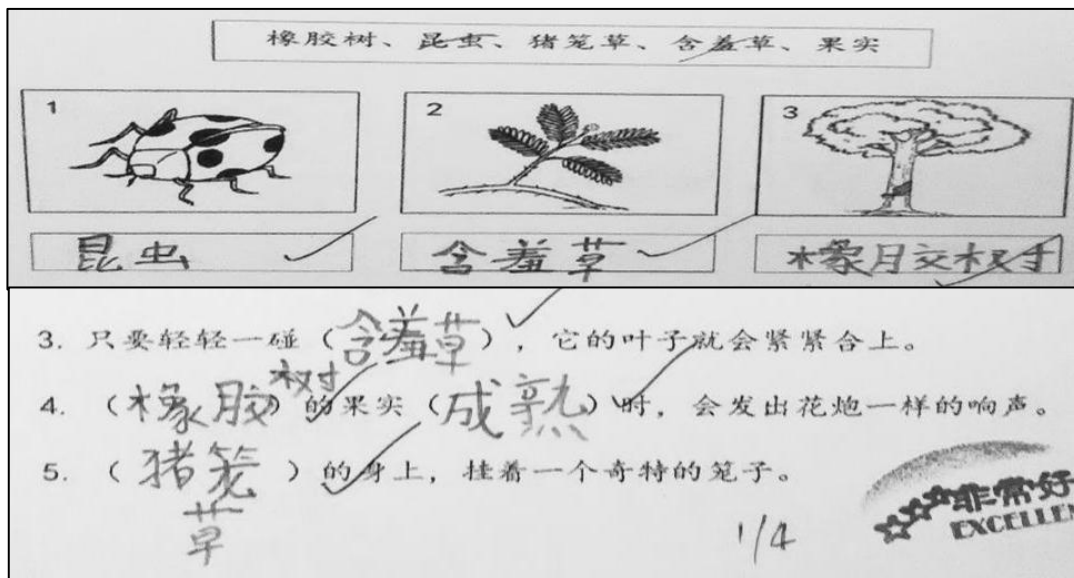 橡胶树、昆虫、猪笼草、含羞草、果实
1 2 3
昆虫 含羞草 橡胶树
3. 只要轻轻一碰（含羞草），它的叶子就会紧紧合上。
4. （橡胶树）的果实（成熟）时，会发出花炮一样的响声。
5. （猪笼草）的身上，挂着一个奇特的笼子。
非常好
EXCELLEN
1/4